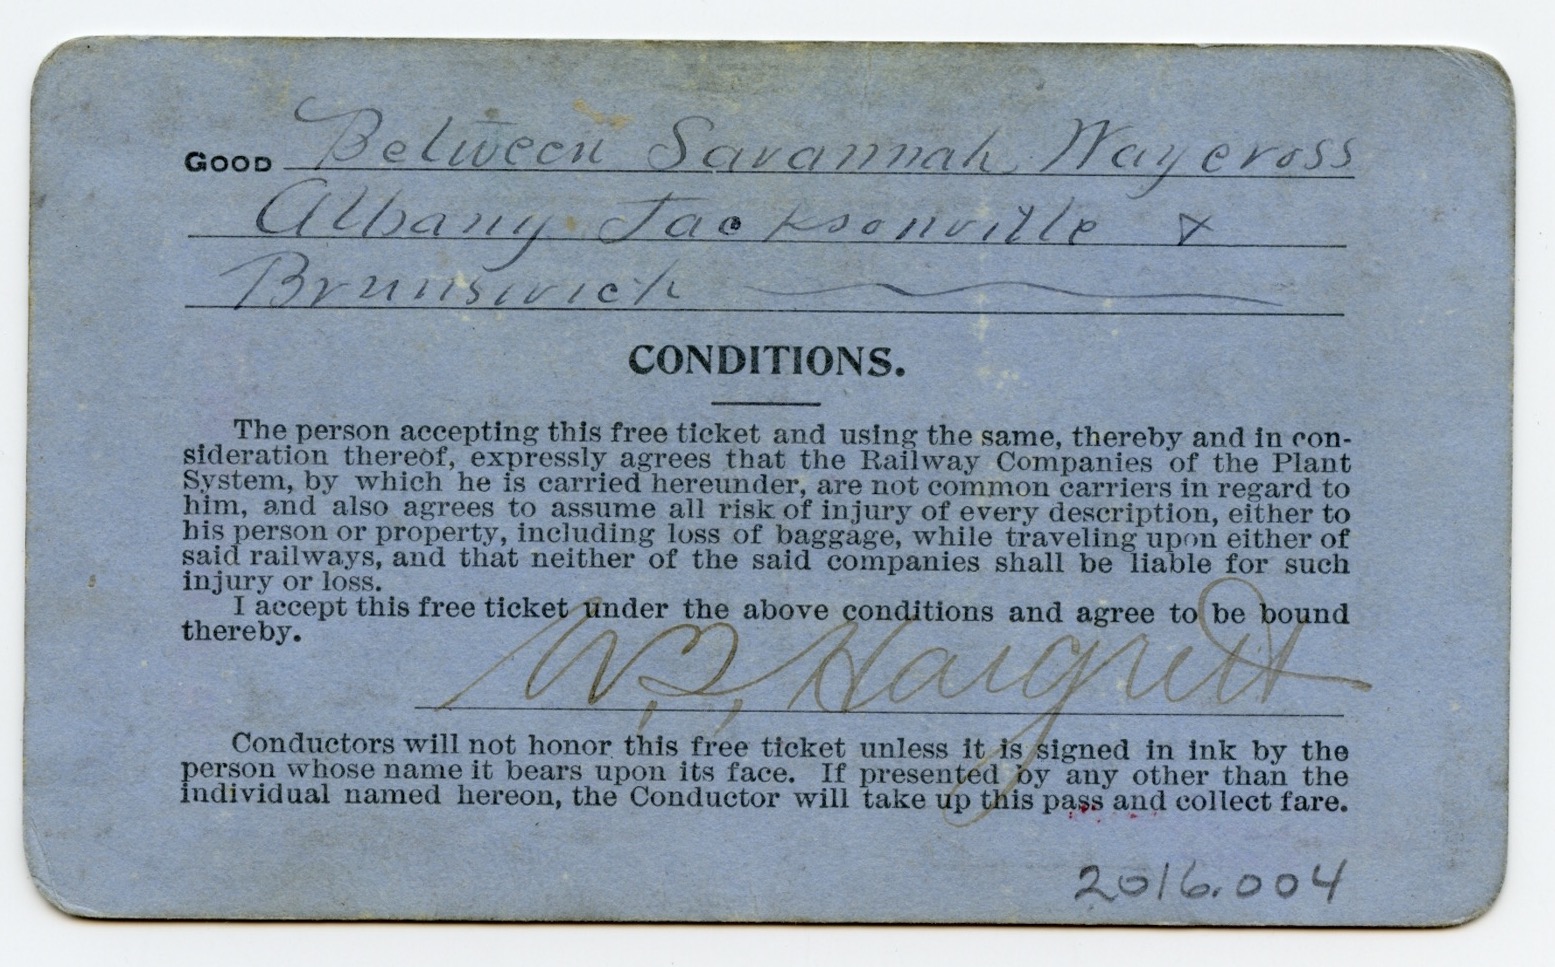 GOOD Between Savannah Waycross
Albany Jacksonville &
Brunswick
CONDITIONS.
The person accepting this free ticket and using the same, thereby and in con-
sideration thereof, expressly agrees that the Railway Companies of the Plant
System, by which he is carried hereunder, are not common carriers in regard to
him, and also agrees to assume all risk of injury of every description, either to
his person or property, including loss of baggage, while traveling upon either of
said railways, and that neither of the said companies shall be liable for such
injury or loss.
I accept this free ticket under the above conditions and agree to be bound
thereby.
W. B. Hargrett
Conductors will not honor this free ticket unless it is signed in ink by the
person whose name it bears upon its face. If presented by any other than the
individual named hereon, the Conductor will take up this pass and collect fare.
2016.004